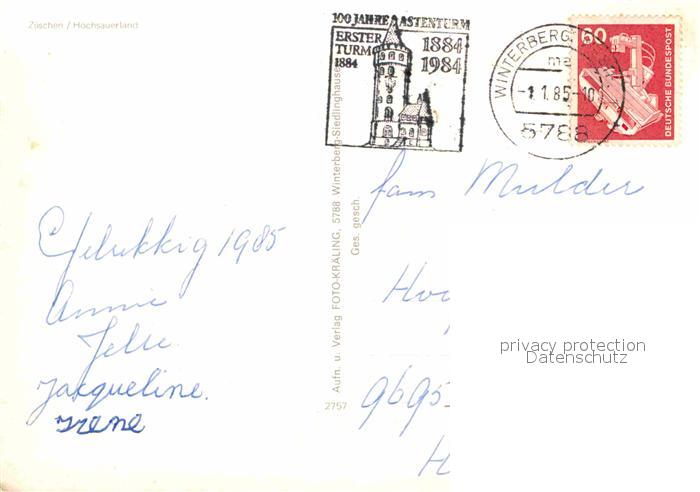 Züschen / Hochsauerland
100 JAHRE ASTENTURM
ERSTER
TURM
1884
1884
1984
WINTERBERG
-1.1.85-10
5788
60
DEUTSCHE BUNDESPOST
Gelukkig 1985
Annie
Jelle
Jacqueline.
Irene
Aufn. u. Verlag FOTO-KRÄLING, 5788 Winterberg-Siedlinghausen
Ges. gesch.
2757
fam Mulder
9695
privacy protection
Datenschutz